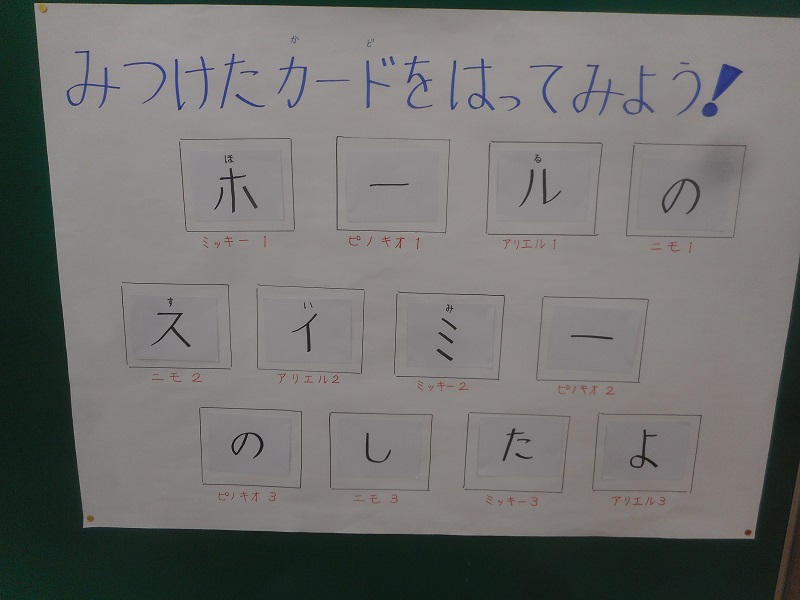 か ど
みつけたカードをはってみよう!
ほ る
ホ ー ル の
ミッキー1 ピノキオ1 アリエル1 ニモ1
す い み
ス イ ミ ー
ニモ2 アリエル2 ミッキー2 ピノキオ2
の し た よ
ピノキオ3 ニモ3 ミッキー3 アリエル3